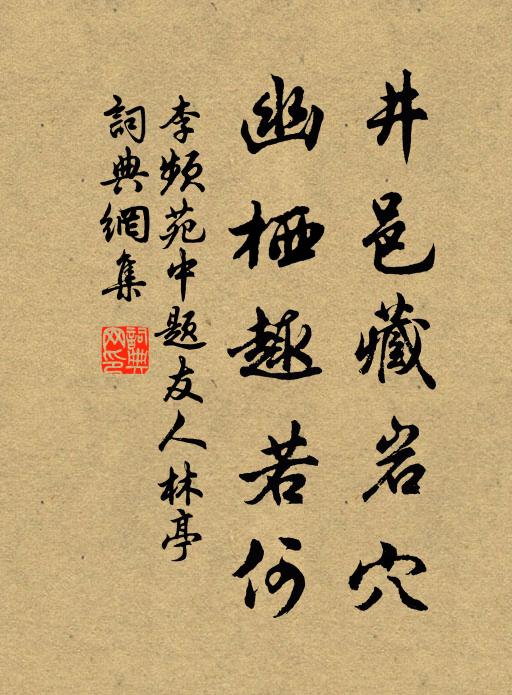 井邑藏岩穴
幽栖趣若何
李频苑中题友人林亭
詞典網集
詞典网印